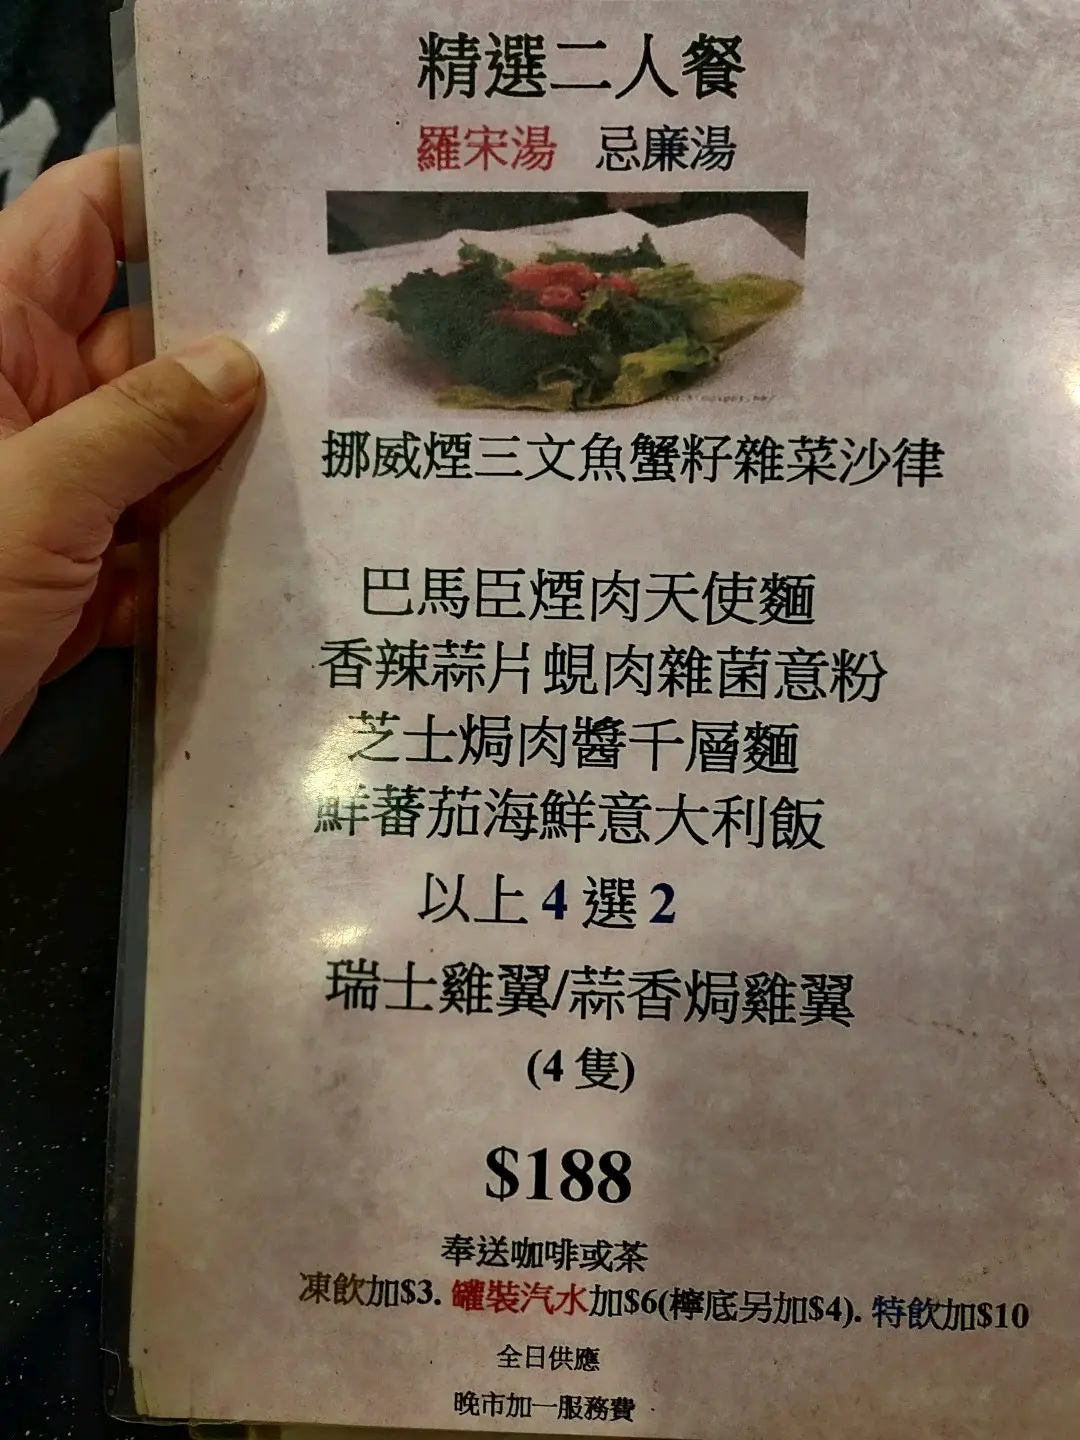 精選二人餐
羅宋湯 忌廉湯
挪威煙三文魚蟹籽雜菜沙律
巴馬臣煙肉天使麵
香辣蒜片蜆肉雜菌意粉
芝士焗肉醬千層麵
鮮蕃茄海鮮意大利飯
以上 4 選 2
瑞士雞翼/蒜香焗雞翼
(4 隻)
$188
奉送咖啡或茶
凍飲加$3. 罐裝汽水加$6(檸底另加$4). 特飲加$10
全日供應
晚市加一服務費